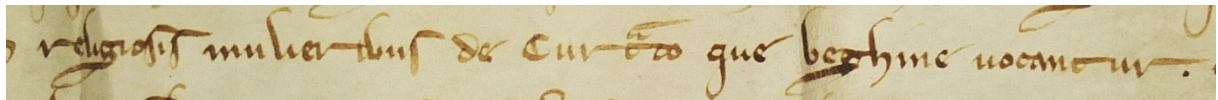 religiosis mulieribus de Curt͛co que beghine uocantur.